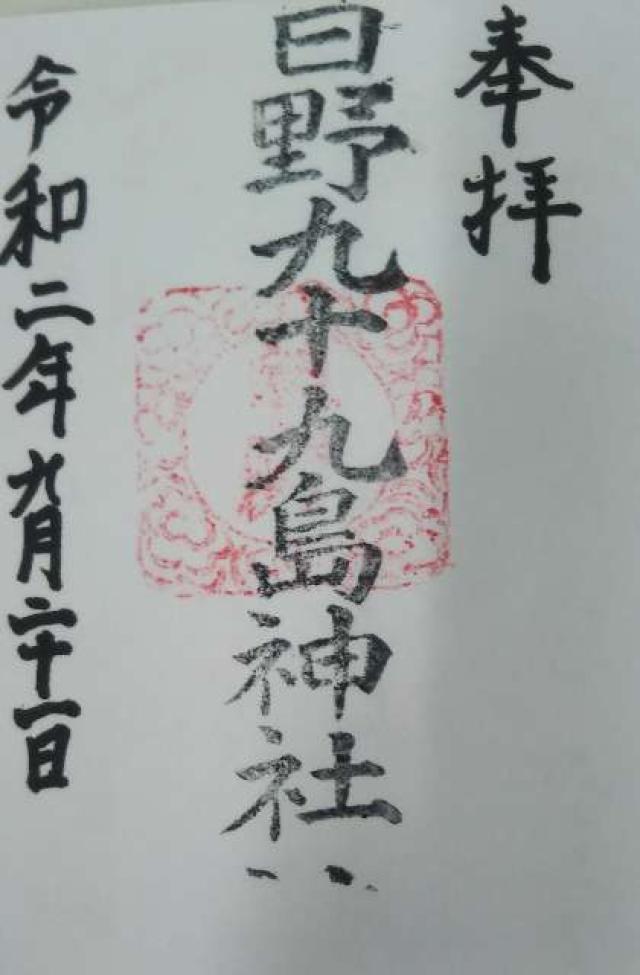 奉拝
日野九十九島神社
令和二年九月二十一日